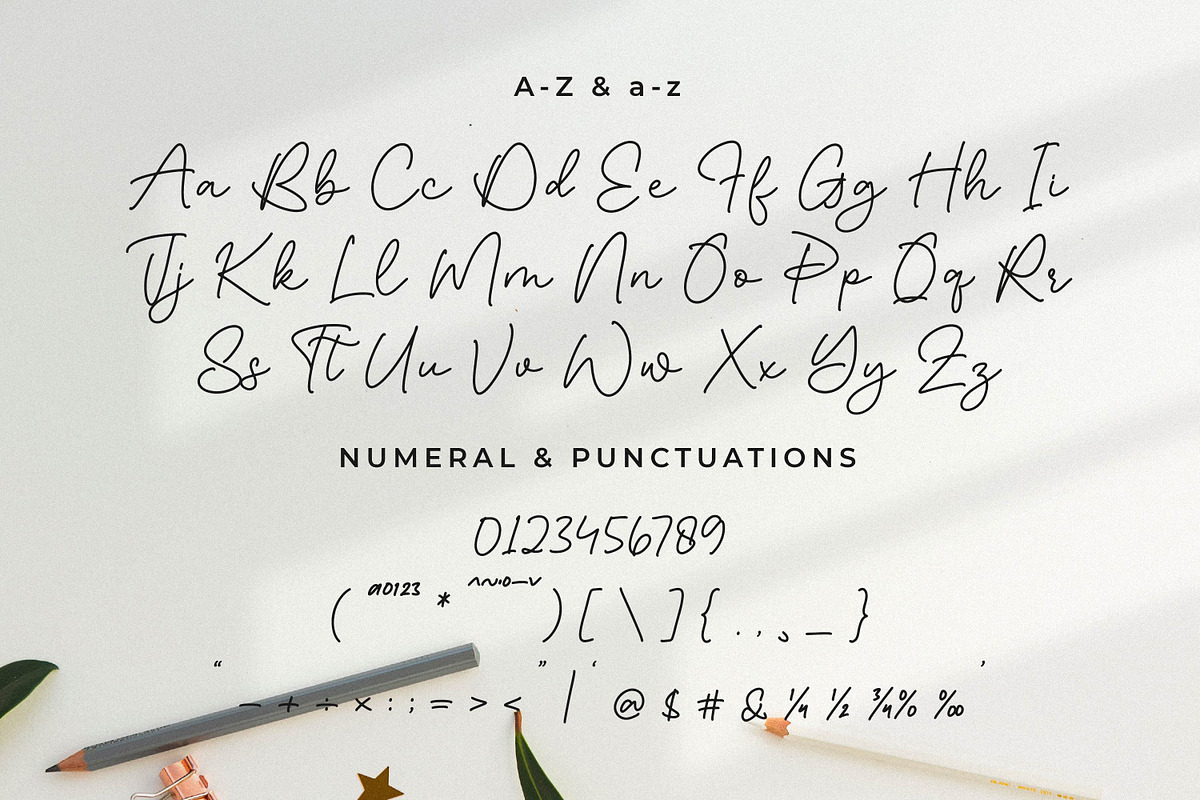 A-Z & a-z
Aa Bb Cc Dd Ee Ff Gg Hh Ii
Jj Kk Ll Mm Nn Oo Pp Qq Rr
Ss Tt Uu Vv Ww Xx Yy Zz
NUMERAL & PUNCTUATIONS
0123456789
( a0123 * ^~¨°¯ˇ ) [ \ ] { . , ¸ _ }
“ – + ÷ × : ; = > < ” | ‘ @ $ # & ¼ ½ ¾ % ‰ ’